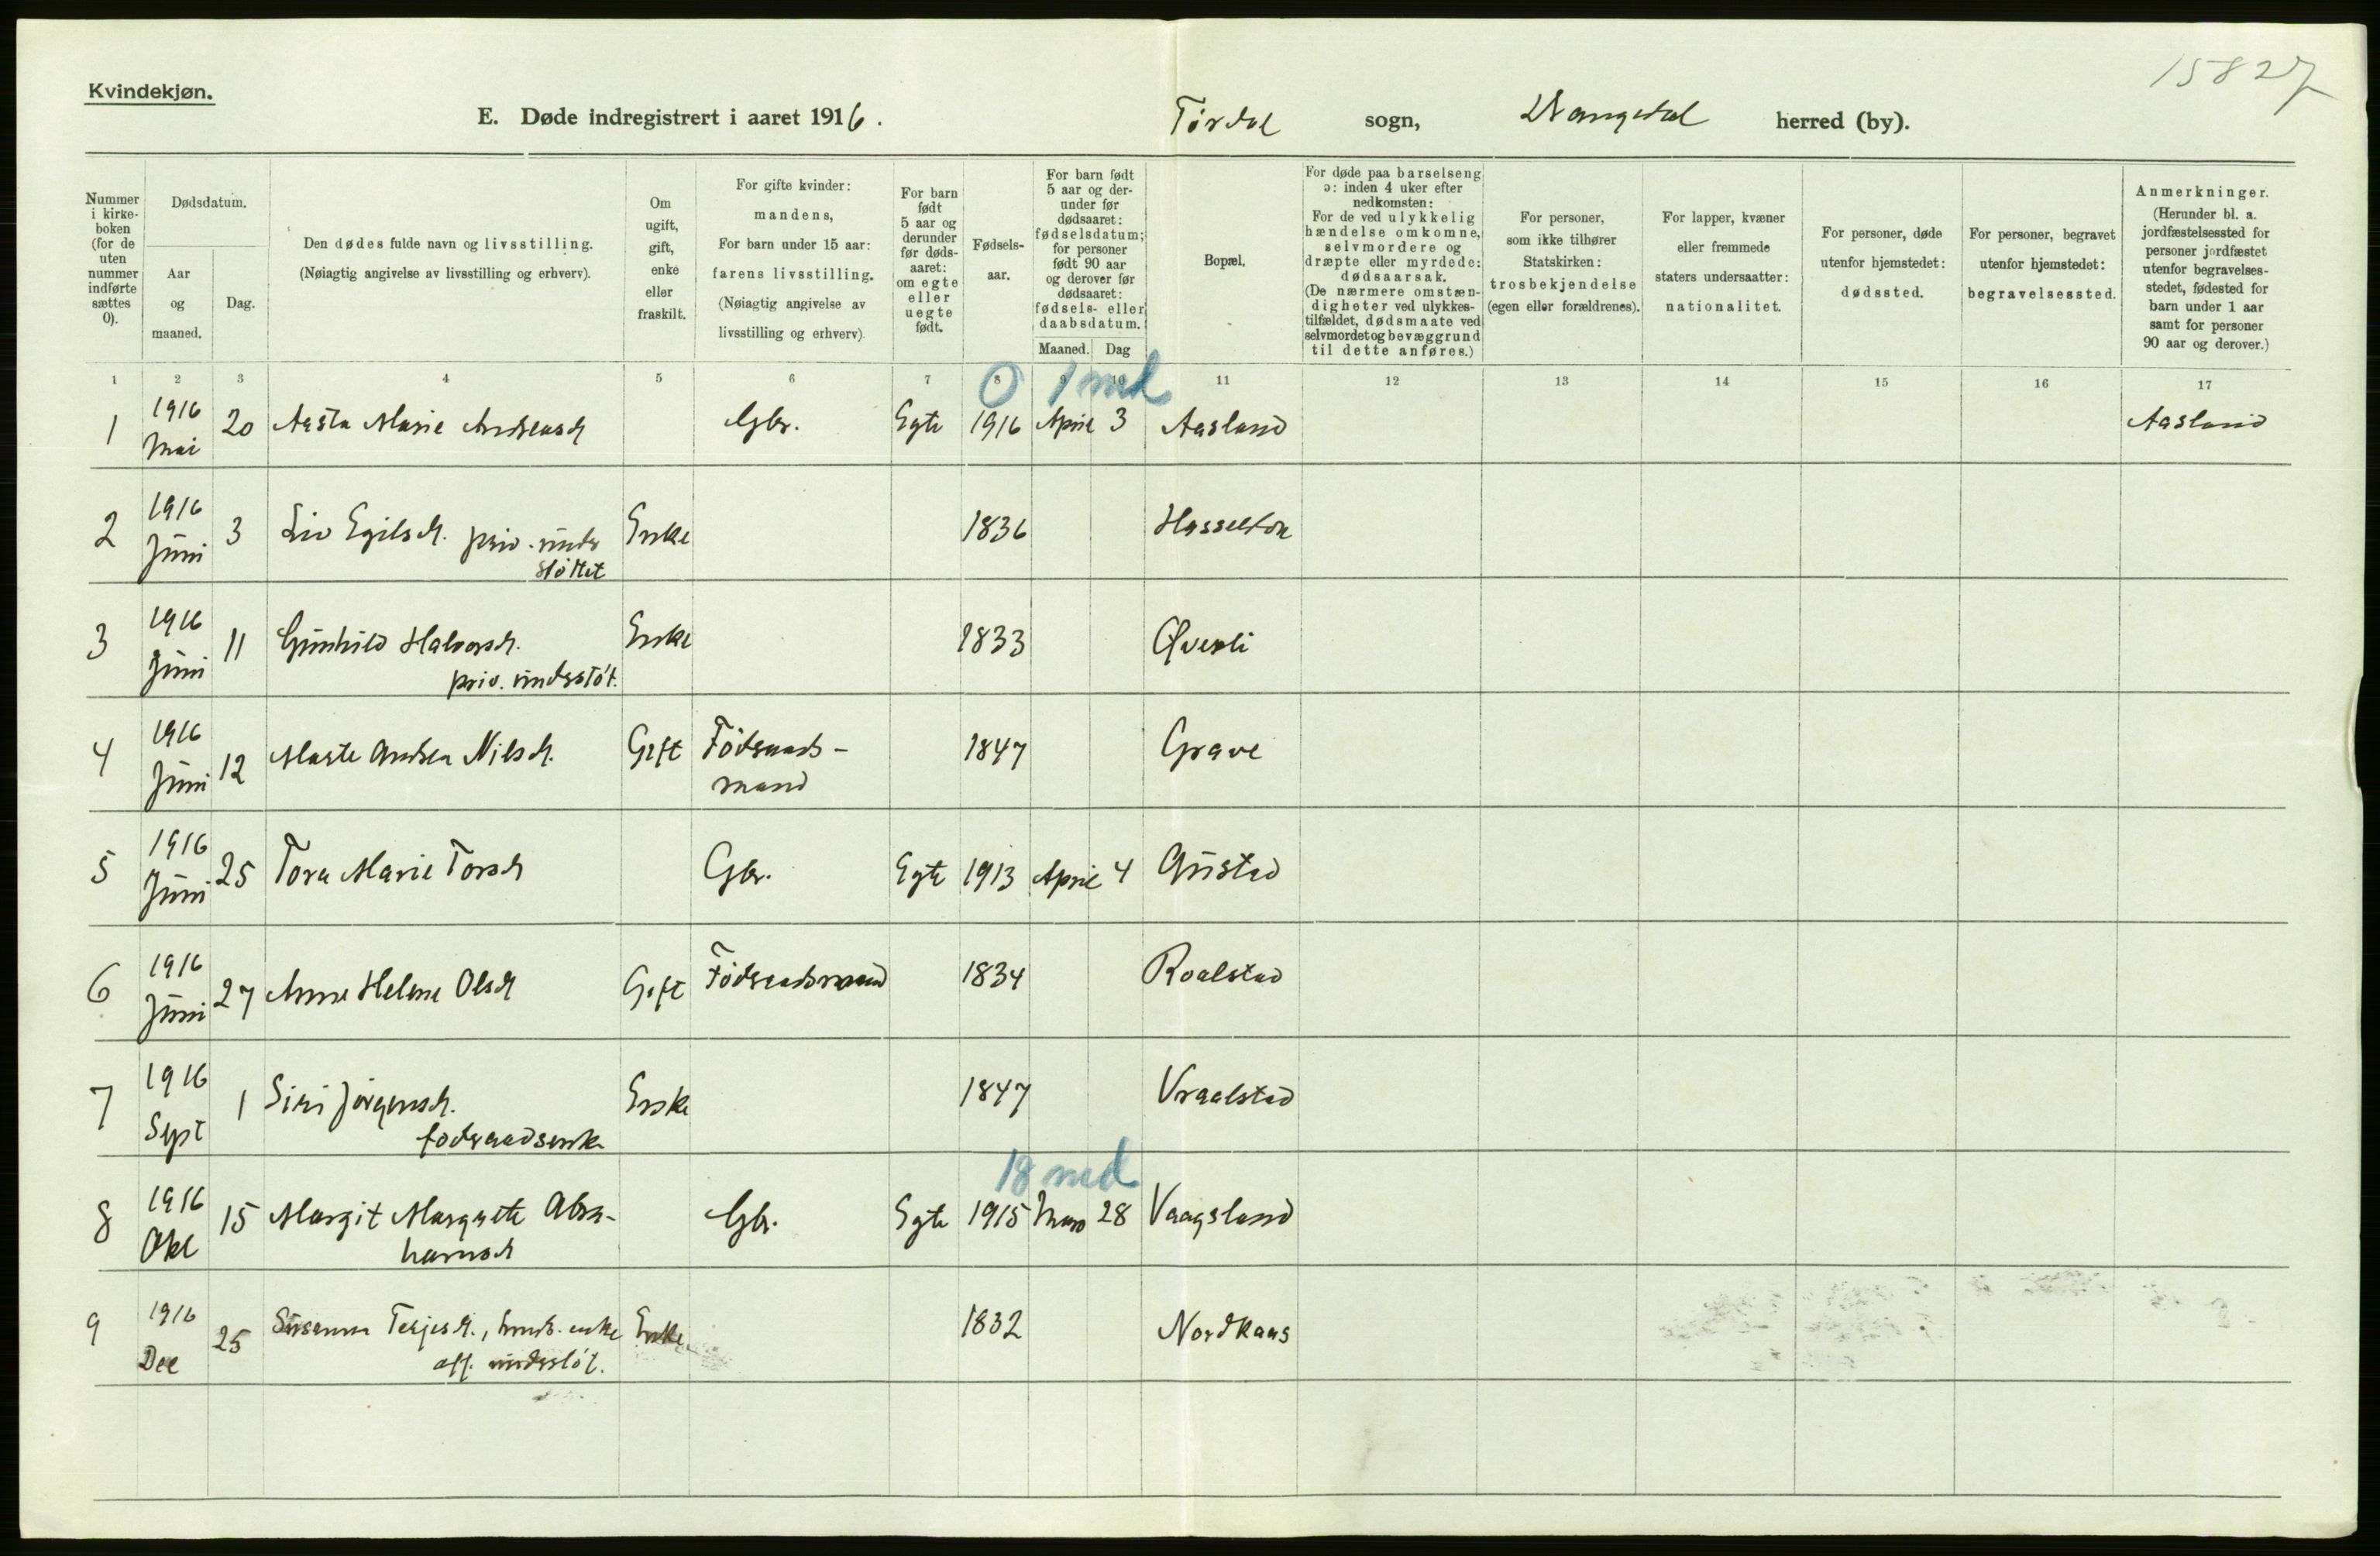 15827
Kvindekjøn.
E. Døde indregistrert i aaret 1916. Tørdal sogn, Drangedal herred (by).
Nummer i kirke- boken (for de uten nummer indførte sættes 0).
Dødsdatum.
Aar og maaned.
Dag.
Den dødes fulde navn og livsstilling.
(Nøiagtig angivelse av livsstilling og erhverv).
Om ugift, gift, enke eller fraskilt.
For gifte kvinder:
mandens,
For barn under 15 aar:
farens livsstilling.
(Nøiagtig angivelse av
livsstilling og erhverv).
For barn født 5 aar og derunder før døds- aaret: om egte eller uegte født.
Fødsels- aar.
For barn født 5 aar og der- under før dødsaaret: fødselsdatum; for personer født 90 aar og derover før dødsaaret: fødsels- eller daabsdatum.
Maaned. Dag
Bopæl.
For døde paa barselseng
ɔ: inden 4 uker efter
nedkomsten:
For de ved ulykkelig
hændelse omkomne,
selvmordere og
dræpte eller myrdede:
dødsaarsak.
(De nærmere omstæn-
digheter ved ulykkes-
tilfældet, dødsmaate ved
selvmordet og bevæggrund
til dette anføres.)
For personer,
som ikke tilhører
Statskirken:
trosbekjendelse
(egen eller forældrenes).
For lapper, kvæner
eller fremmede
staters undersaatter:
nationalitet.
For personer, døde
utenfor hjemstedet:
dødssted.
For personer, begravet
utenfor hjemstedet:
begravelsessted.
Anmerkninger.
(Herunder bl. a.
jordfæstelsessted for
personer jordfæstet
utenfor begravelses-
stedet, fødested for
barn under 1 aar
samt for personer
90 aar og derover.)
1 2 3 4 5 6 7 8 9 10 11 12 13 14 15 16 17
0 1 md
1 1916 Mai 20 Aasta Marie Andreasd Gbr. Egte 1916 April 3 Aasland Aasland
2 1916 Juni 3 Liv Egilsd. priv. under støttet Enke 1836
3 1916 Juni 11 Gunhild Halvorsd. priv. understøt. Enke 1833 Øverli
4 1916 Juni 12 Nilsd. Gift Föderaads- mand 1847 Grave
5 1916 Juni 25 Tora Marie Torsd Gbr. Egte 1913 April 4 Gustad
6 1916 Juni 27 Anne Helene Olsd Gift Föderaadsmand 1834 Roalstad
7 1916 Sept 1 Siri Jörgensd. foderaadsenke Enke 1847 Vraalstad
18 md
8 1916 Okt 15 Margit Margrete Abra- hamsd Gbr. Egte 1915 Mars 28 Vaagsland
9 1916 Dec 25 Susanna Terjesd., enke off. understöt. Enke 1832 Nordkaas